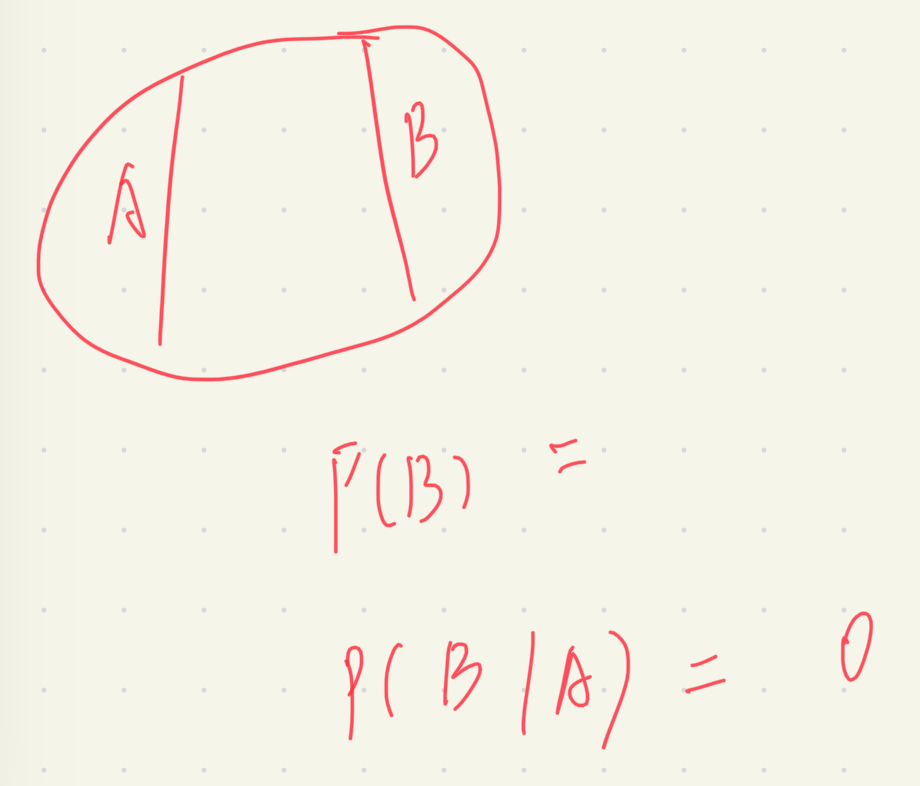 A
B
P(B) =
P(B|A) = 0